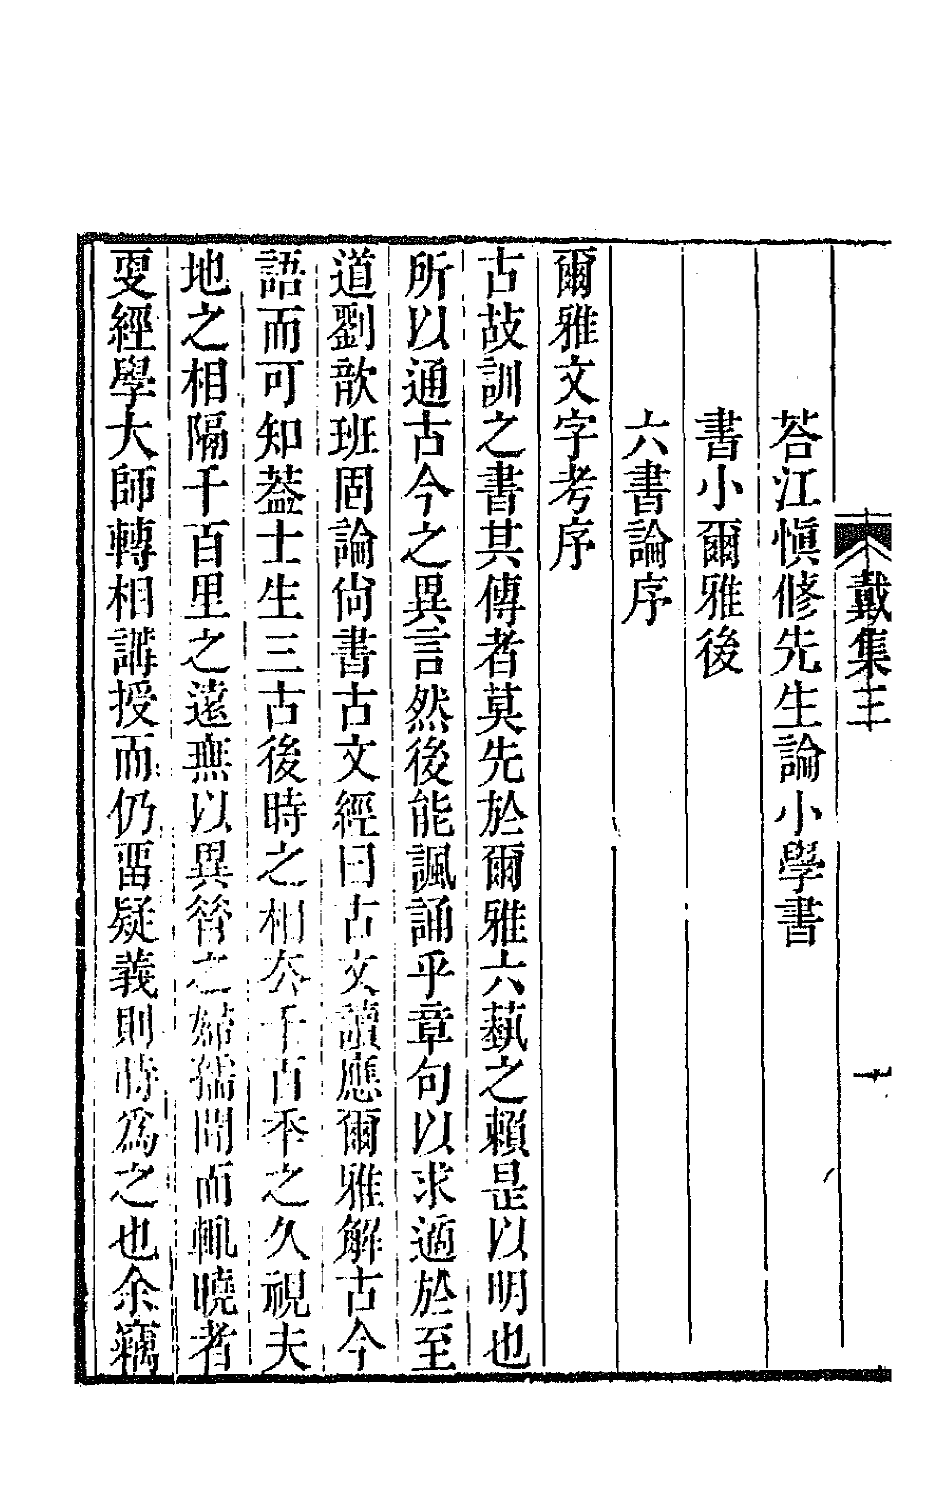 戴集三
一
荅江慎修先生論小學書
書小爾雅後
六書論序
爾雅文字考序
古故訓之書其傳者莫先於爾雅六蓺之賴是以明也
所以通古今之異言然後能諷誦乎章句以求適於至
道劉歆班固論尙書古文經曰古文讀應爾雅解古今
語而可知葢士生三古後時之相去千百年之久視夫
地之相隔千百里之遠無以異昝之婦孺聞而輒曉者
更經學大師轉相講授而仍畱疑義則時爲之也余竊